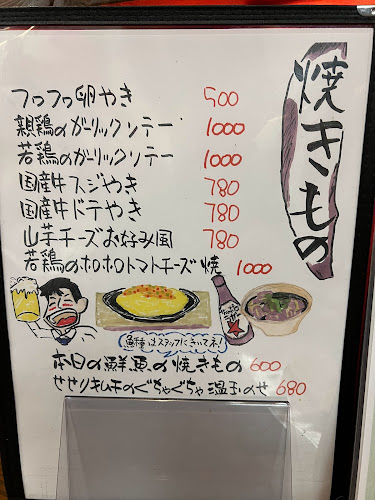 焼きもの
フワフワ卵やき 500
親鶏のガーリックソテー 1000
若鶏のガーリックソテー 1000
国産牛スジやき 780
国産牛ドテやき 780
山芋チーズお好み風 780
若鶏のホロホロトマトチーズ焼 1000
魚種はスタッフにきいてネ!
本日の鮮魚の焼きもの 600
せせりキムチのぐちゃぐちゃ温玉のせ 680